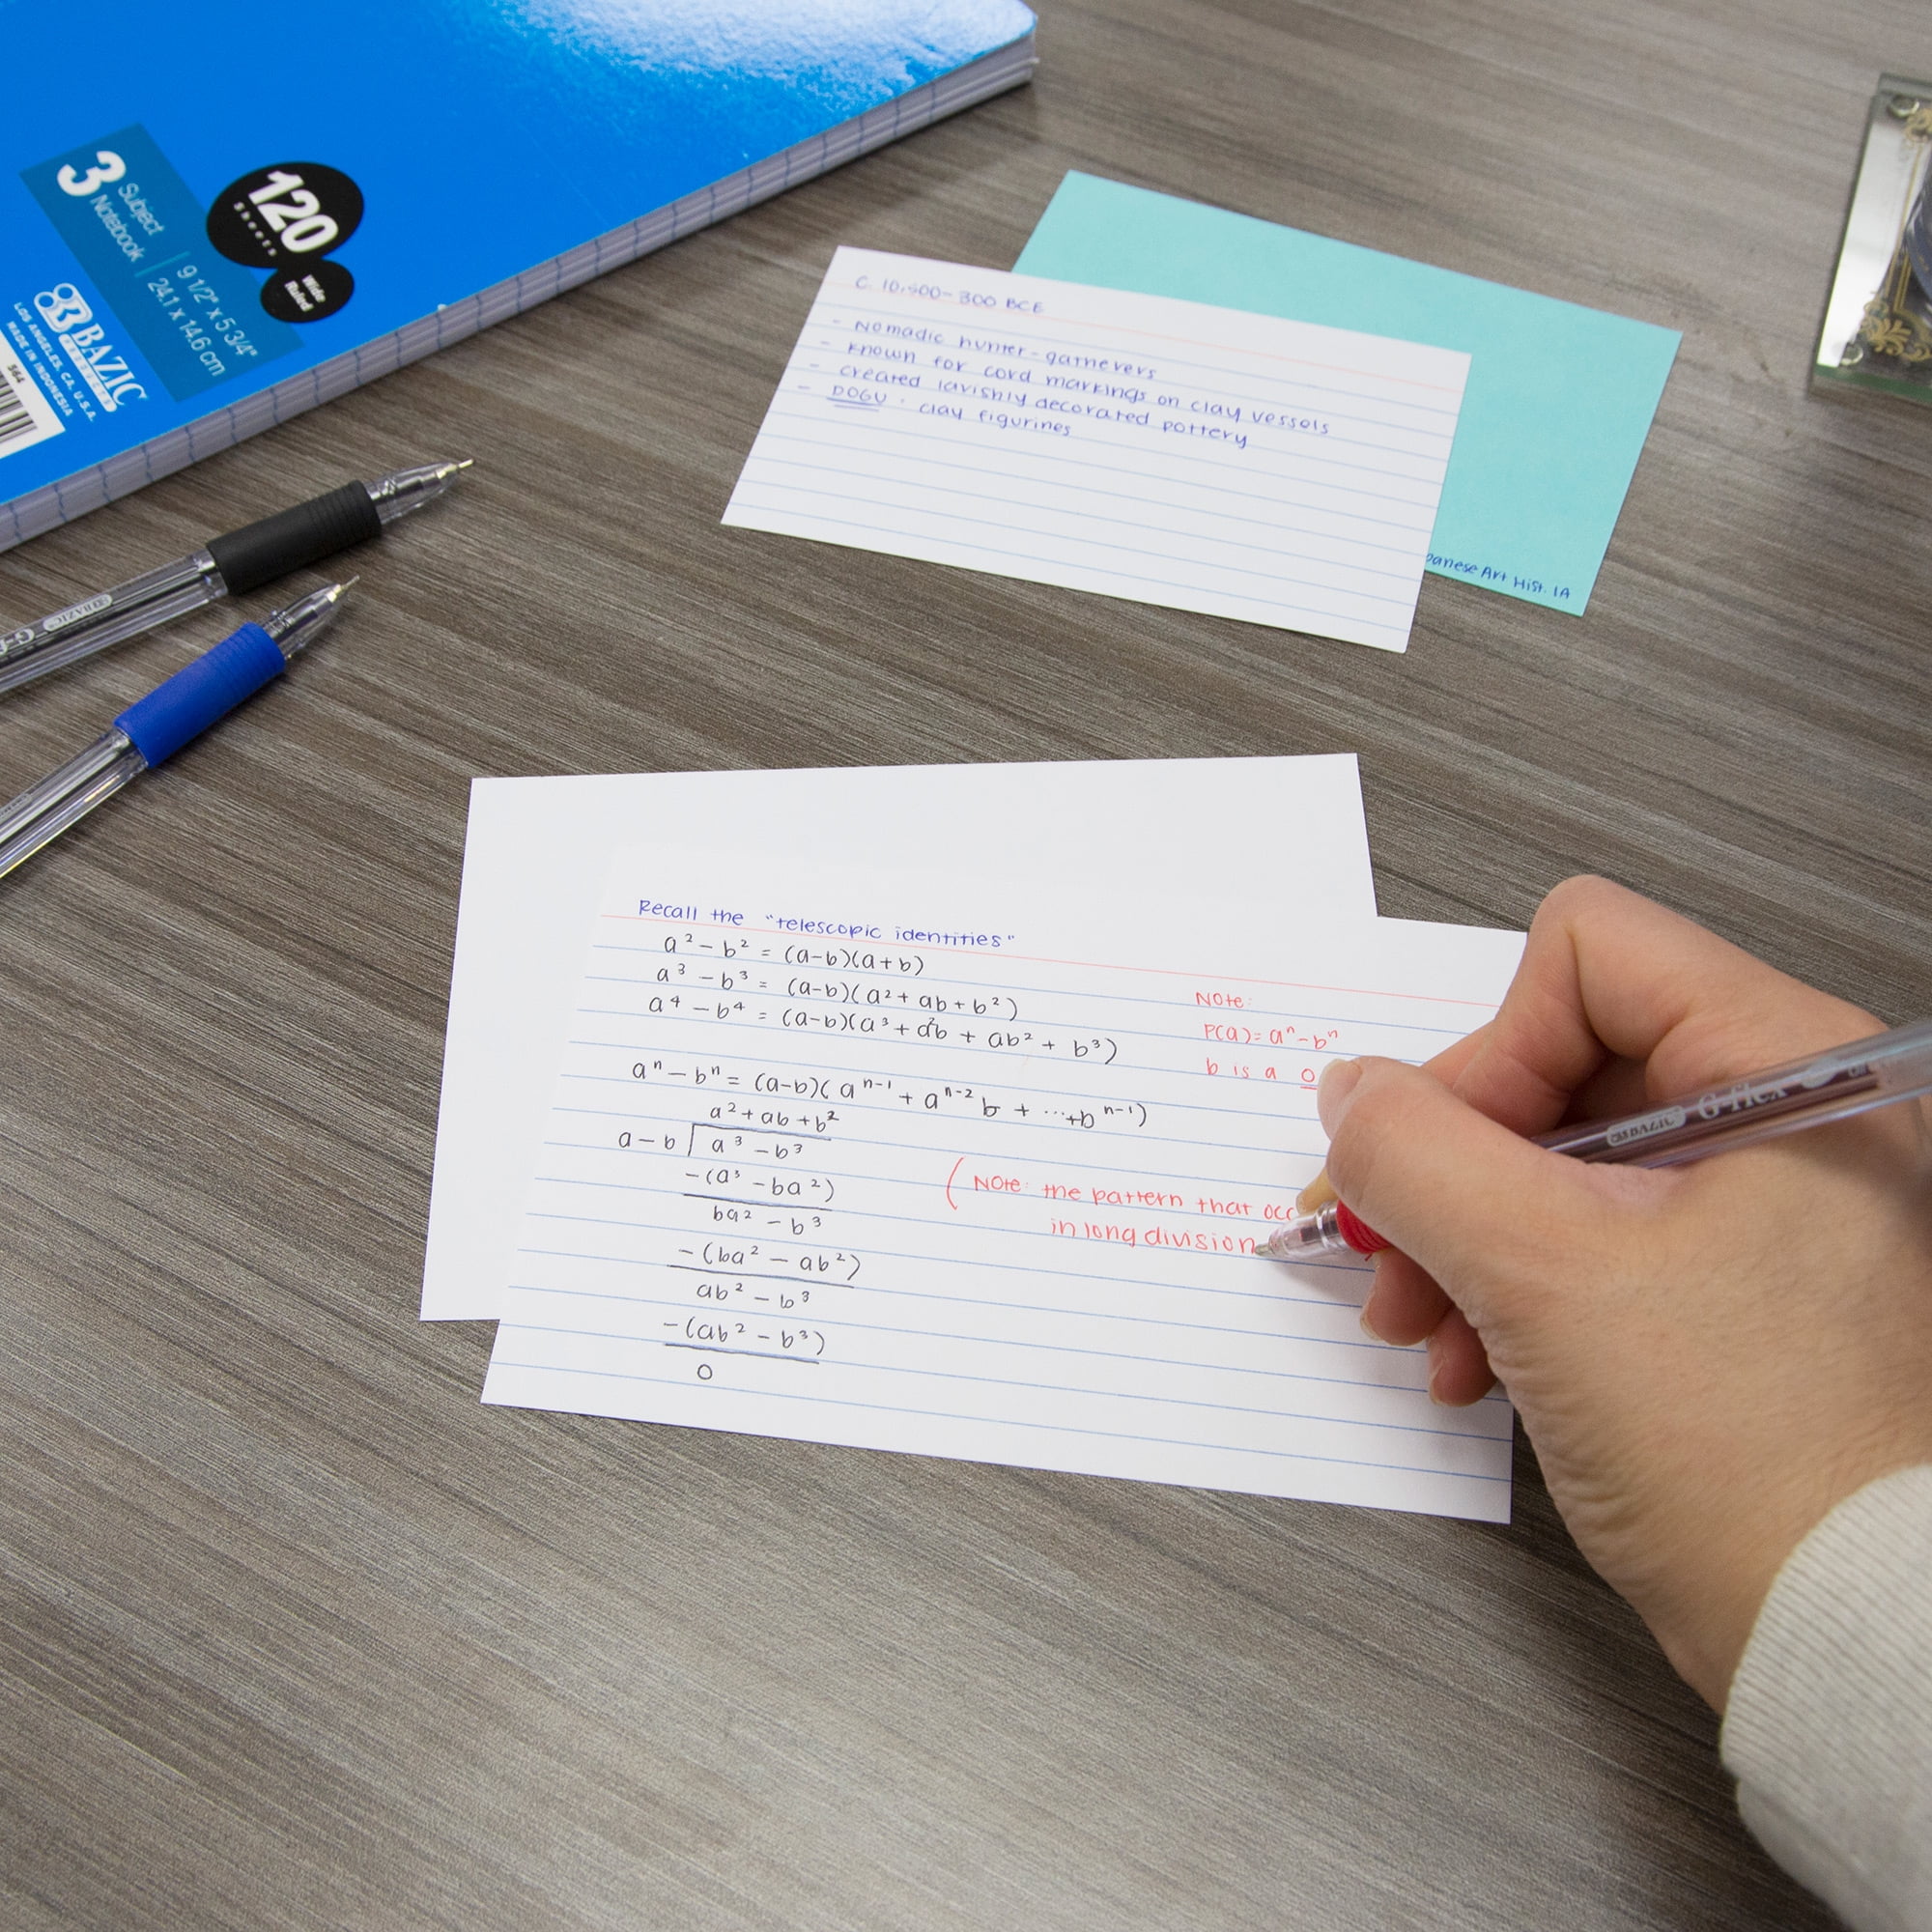 3 Subject
Notebook
120
Sheets
Wide
Ruled
9 1/2" x 5 3/4"
24.1 x 14.6 cm
BAZIC
PRODUCTS
LOS ANGELES, CA, U.S.A.
MADE IN INDONESIA
564
BAZIC
C. 10,500-300 BCE
- Nomadic hunter-gatherers
- known for cord markings on clay vessels
- created lavishly decorated pottery
- DOGU: clay figurines
panese Art Hist. 1A
Recall the "telescopic identities"
a² - b² = (a-b)(a+b)
a³ - b³ = (a-b)(a² + ab + b²)
a⁴ - b⁴ = (a-b)(a³ + a²b + ab² + b³)
aⁿ - bⁿ = (a-b)(aⁿ⁻¹ + aⁿ⁻²b + ...+bⁿ⁻¹)
a² + ab + b²
a - b a³ - b³
-(a³ - ba²)
ba² - b³
-(ba² - ab²)
ab² - b³
-(ab² - b³)
0
Note:
P(a) = aⁿ - bⁿ
b is a 0
(Note: the pattern that occ
in long division
BAZIC G-Flex